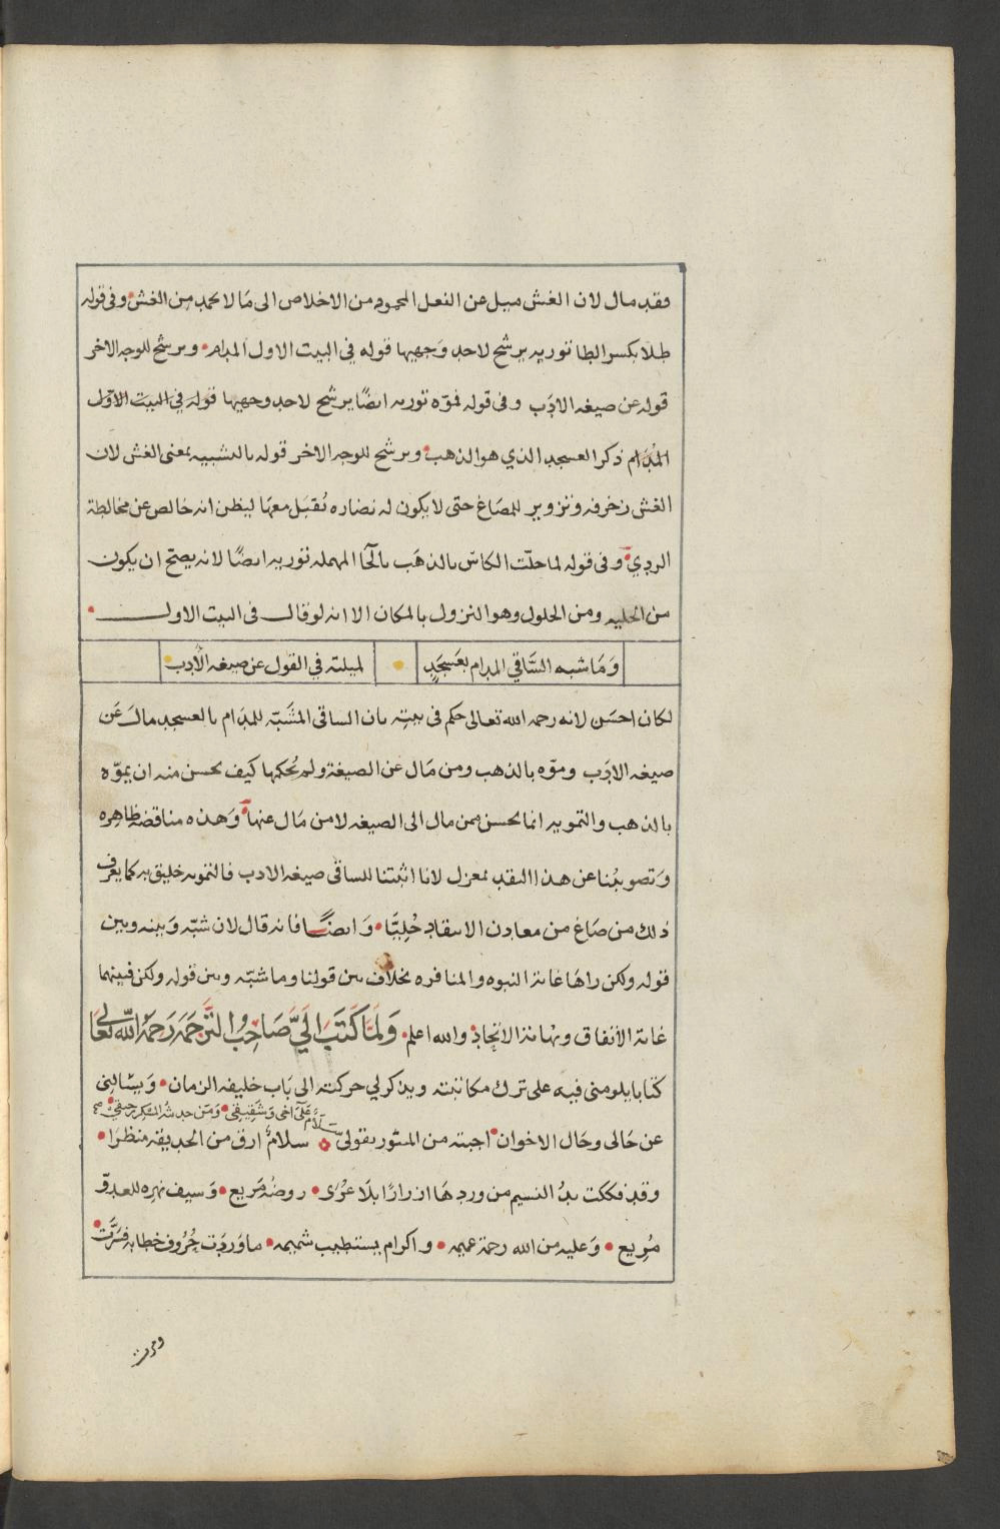 وقد مال لان الغش ميل عن الفعل المحمود من الاخلاص الى مَا لا يحمد من الغش وفى قوله
طلا بكسر الطا توريه يرشح لاحد وَجهيها قوله في البيت الاول المدام ويرشح للوجه الاخر
قوله عن صيغه الادَب وفى قوله فموّه توريه ايضًا يرشح لاحد وجهيها قوله فى البيت الاوّل
المدام ذكر العسجد الذي هو الذهب ويرشح للوجه الاخر قوله بالتشبيه بمعنى الغش لان
الغش زخرفه وتزوير للمصَاغ حتى لا يكون له نضاره تُقبَل معهَا ليظن انه خالص عن مخالطة
الردي وفى قوله لما حلّت الكاس بالذهَب بالحَا المهمله توريه ايضًا لانه يصحّ ان يكون
من الحليه ومن الحلول وهو النزول بالمكان الا انه لو قال فى البيت الاول
وَمَا شبه السَّاقي المدام بعَسجَدٍ لميلته في القول عن صيغه الأدب
لكان احسَن لانه رحمه الله تعالى حكم فى بيته بان الساقى المشَبّه للمدَام بالعسجد مالَ عَن
صيغه الادَب وموّه بالذهب ومن مَال عن الصيغة ولم يُحكمها كيف يحسن منه ان يموّه
بالذهب والتمويه انما يحسن ممن مال الى الصيغه لا من مَال عنها وَهذه مناقضه ظاهره
وَتصويبُنا عن هذا النقد بمعزل لانا اثبتنا للساقى صيغه الادب فالتمويه خليق به كما يعرف
ذلك من صَاغ من معادن الانتقاد حُليًّا وَايضًا فانه قال لان شبّه وَبينه وبين
قوله ولكن راهَا غاية النبوه والمنافره بخلاف بين قولنا وما شبّه وبين قوله ولكن فبينهما
غاية الأتفاق ونهاية الاتحاد والله اعلم وَلمَّا كَتَبَ الَيَّ صَاحِبُ التَّرجَمَه رَحمَهُ اللّه تعَالى
كتابا يلومنى فيه على ترك مكاتبته ويذكر لي حركته الى بَاب خليفه الزمان وَيسَالنى
سَلَامٌ عَلَى اخى وَشَقِيقِى وَمَن حدشه الشكر حقيق صح
عن حَالى وحَال الاخوان اجبته من المنثور بقولى سلامٌ ارق من الحديقه منظرَا
وقد فككت يدُ النسيم من وردِهَا ازرارًا بلَا عُرًى روضُه مَريع وَسيف نهره للعدوّ
مُريع وَعليه من الله رحمة عميمه واكرام يستطيب شميمه ما وَردَت حُرُوف خطابه فسَرَّت
ومرت